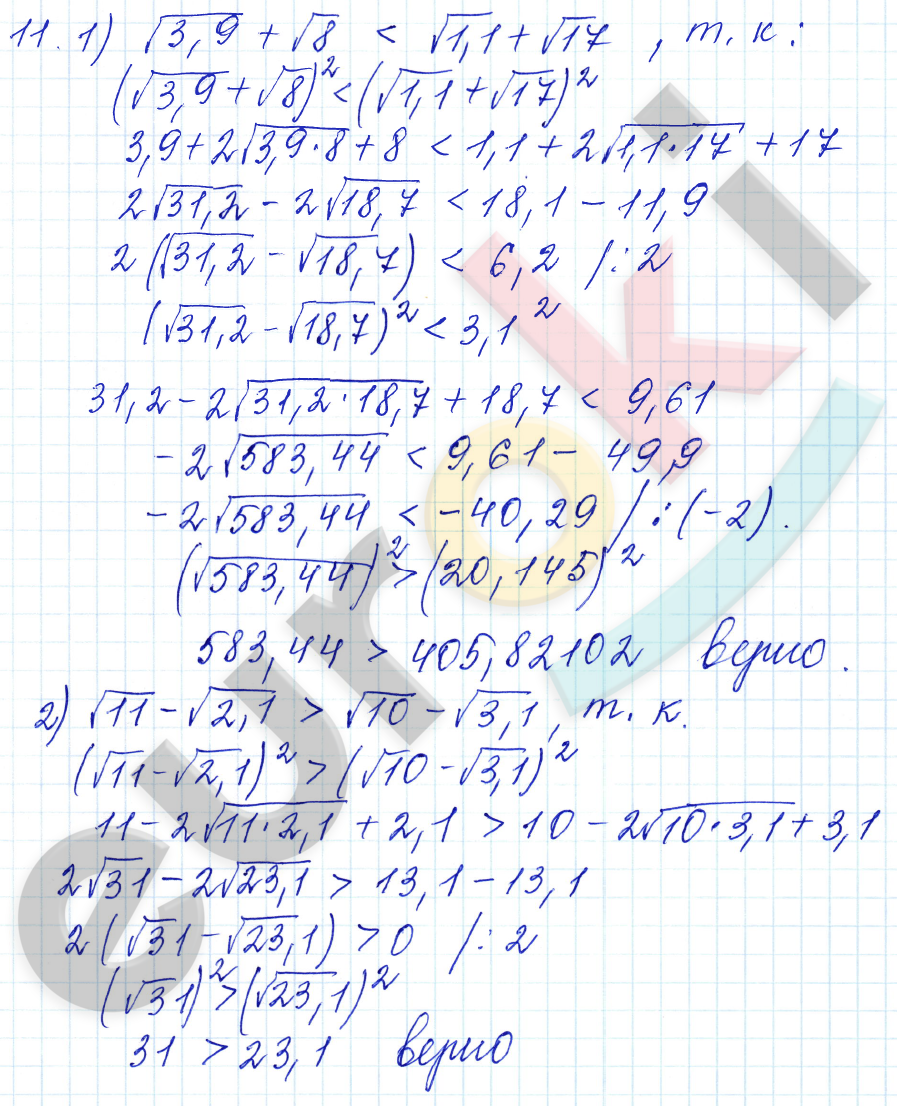 11. 1) √3,9 + √8 < √1,1 + √17, т. к:
(√3,9 + √8)² < (√1,1 + √17)²
3,9 + 2√3,9·8 + 8 < 1,1 + 2√1,1·17 + 17
2√31,2 - 2√18,7 < 18,1 - 11,9
2 (√31,2 - √18,7) < 6,2 /: 2
(√31,2 - √18,7)² < 3,1²
31,2 - 2√31,2·18,7 + 18,7 < 9,61
-2√583,44 < 9,61 - 49,9
-2√583,44 < -40,29 /: (-2).
(√583,44)² > (20,145)²
583,44 > 405,82102 верно.
2) √11 - √2,1 > √10 - √3,1, т. к.
(√11 - √2,1)² > (√10 - √3,1)²
11 - 2√11·2,1 + 2,1 > 10 - 2√10·3,1 + 3,1
2√31 - 2√23,1 > 13,1 - 13,1
2 (√31 - √23,1) > 0 /: 2
(√31)² > (√23,1)²
31 > 23,1 верно
euroki